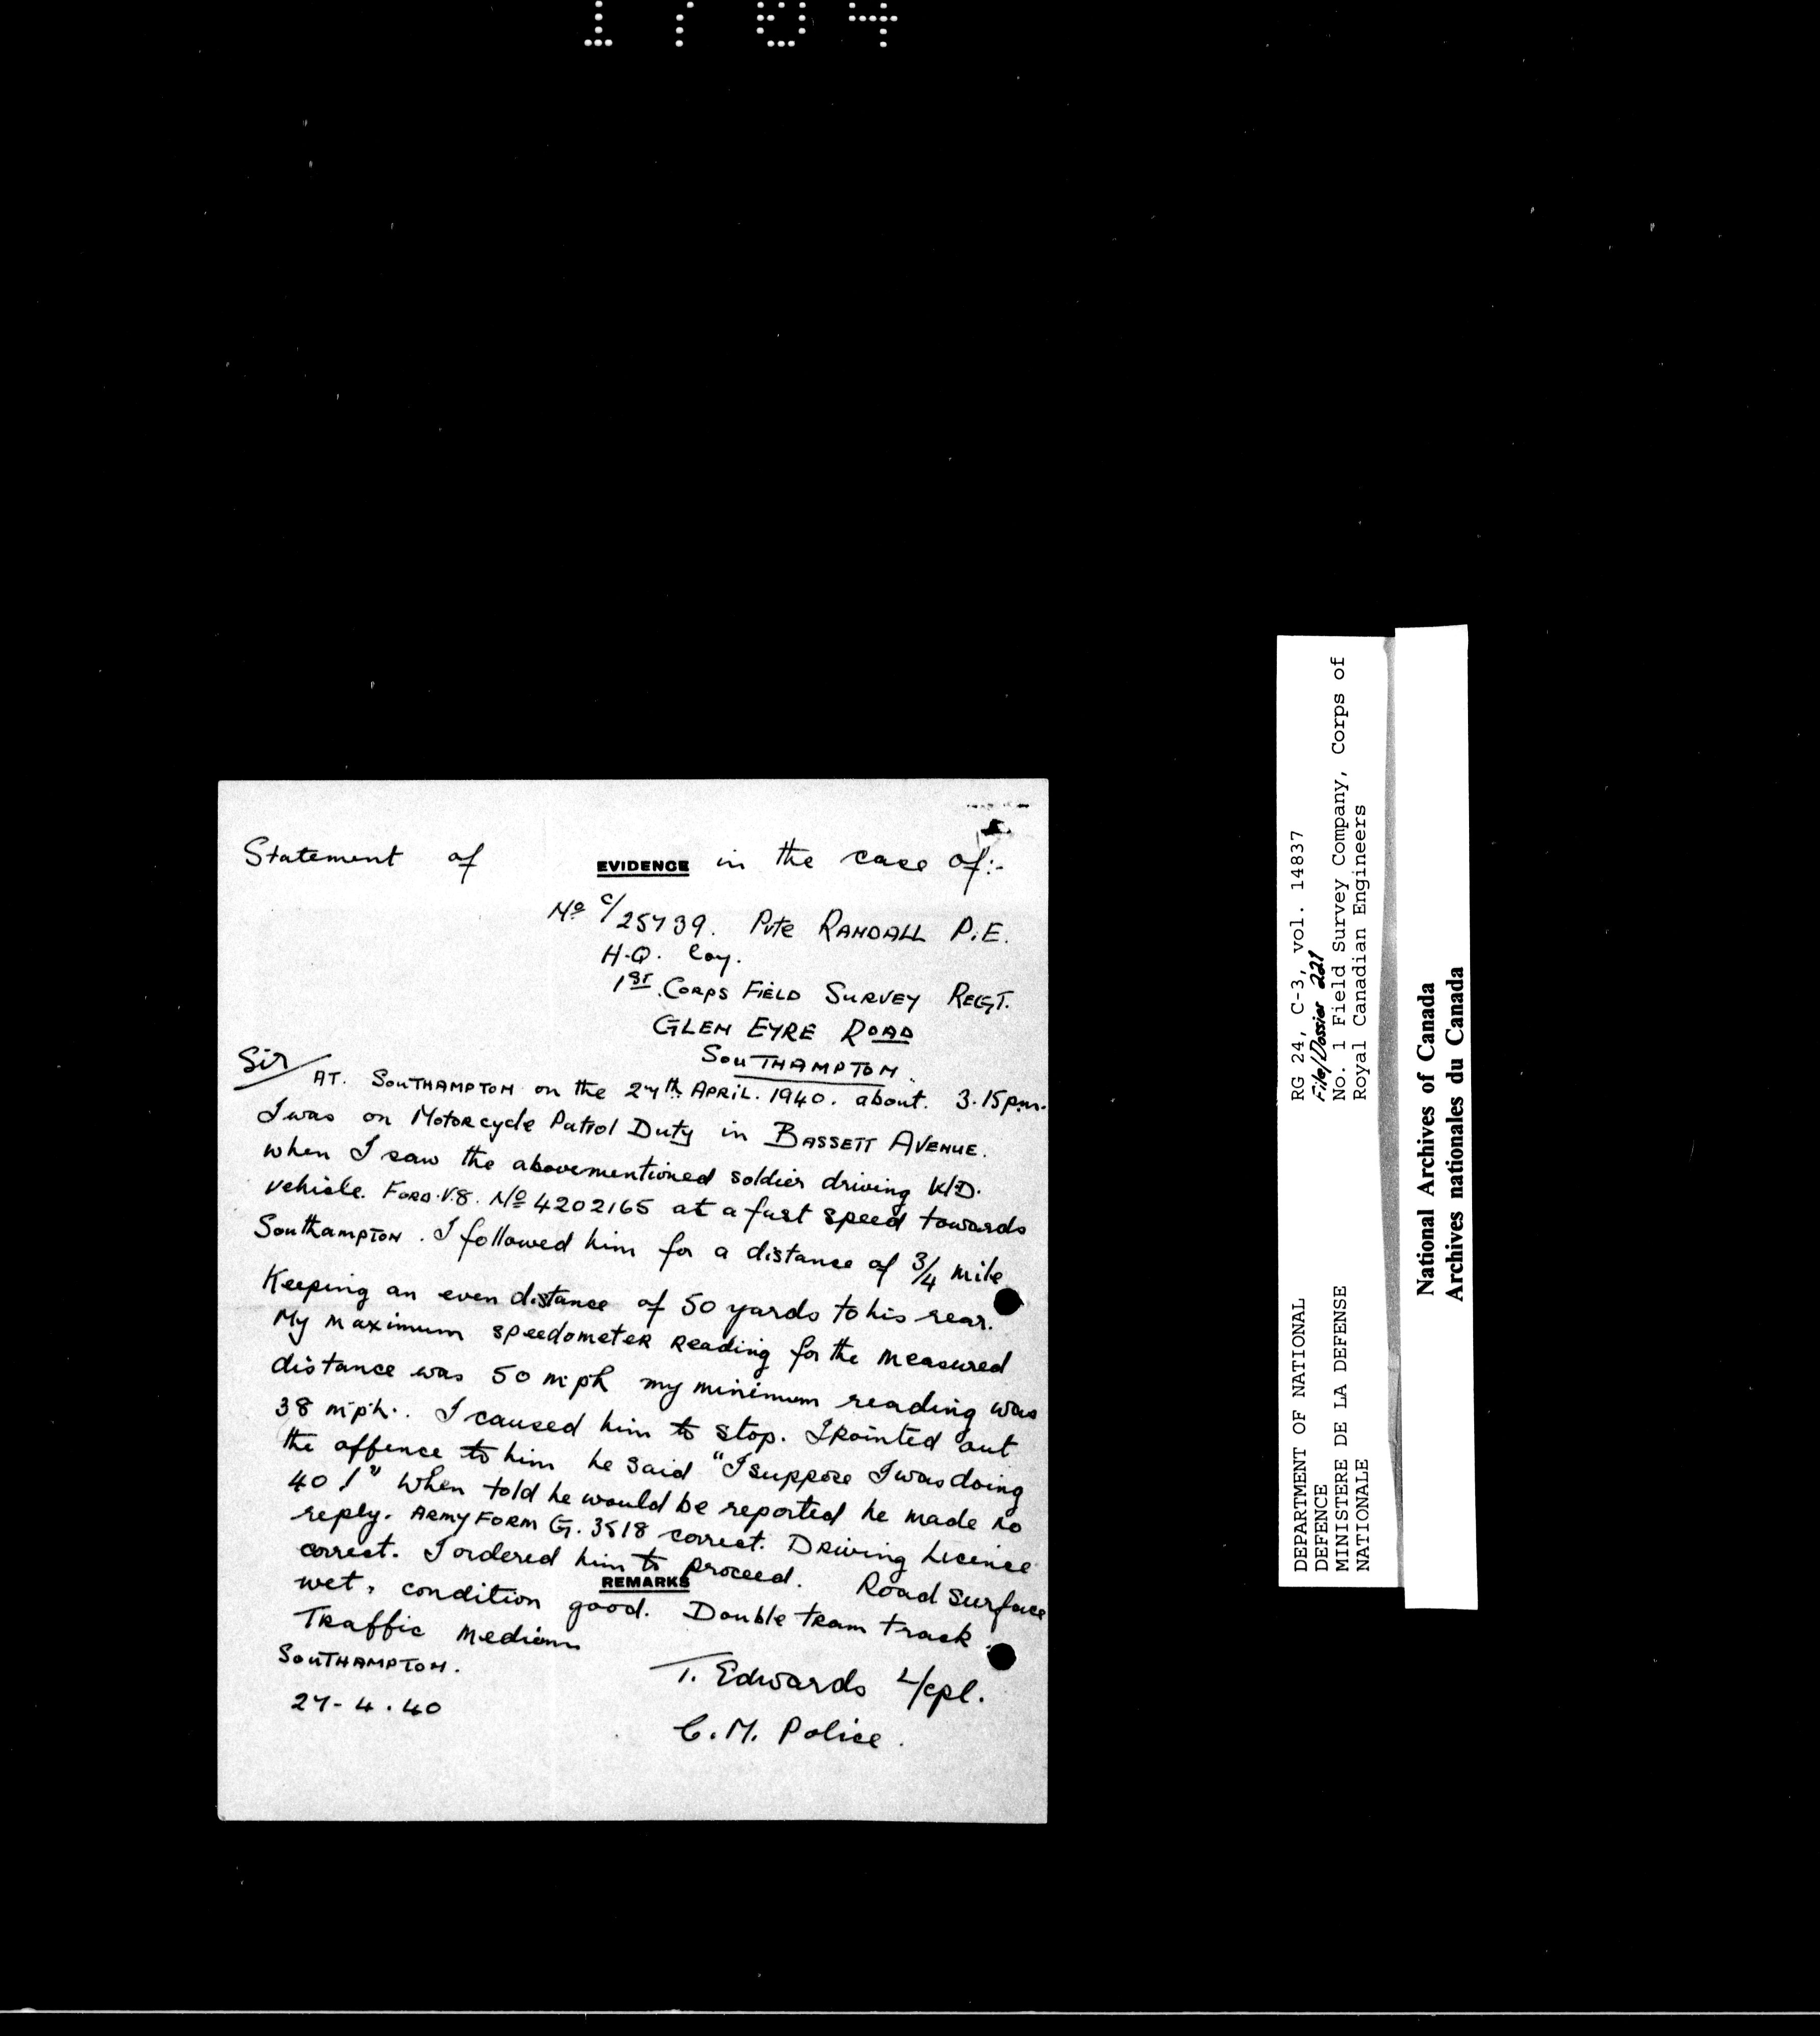 1704
Statement of EVIDENCE in the case of:-
Nº C/25739. Pvte RANDALL P.E.
H.Q. Coy.
1ST. CORPS FIELD SURVEY REGT.
GLEN EYRE ROAD
SOUTHAMPTON.
Sir
AT. SOUTHAMPTON on the 27th APRIL. 1940. about. 3.15pm.
I was on Motorcycle Patrol Duty in BASSETT AVENUE.
when I saw the abovementioned soldier driving W.D.
vehicle. FORD.V.8. Nº 4202165 at a fast speed towards
Southampton. I followed him for a distance of 3/4 mile
Keeping an even distance of 50 yards to his rear.
My maximum speedometer Reading for the measured
distance was 50 m.p.h my minimum reading was
38 m.p.h.. I caused him to stop. I pointed out
the offence to him he said "I suppose I was doing
40!" When told he would be reported he made no
reply. ARMY FORM G. 3518 correct. Driving Licence
correct. I ordered him to proceed. Road Surface
REMARKS
wet, condition good. Double tram track.
Traffic Medium
SOUTHAMPTON.
27-4.40
T. Edwards L/cpl.
C.M. Police.
DEPARTMENT OF NATIONAL
DEFENCE
MINISTERE DE LA DEFENSE
NATIONALE
RG 24, C-3, vol. 14837
File/Dossier 221
No. 1 Field Survey Company, Corps of
Royal Canadian Engineers
National Archives of Canada
Archives nationales du Canada